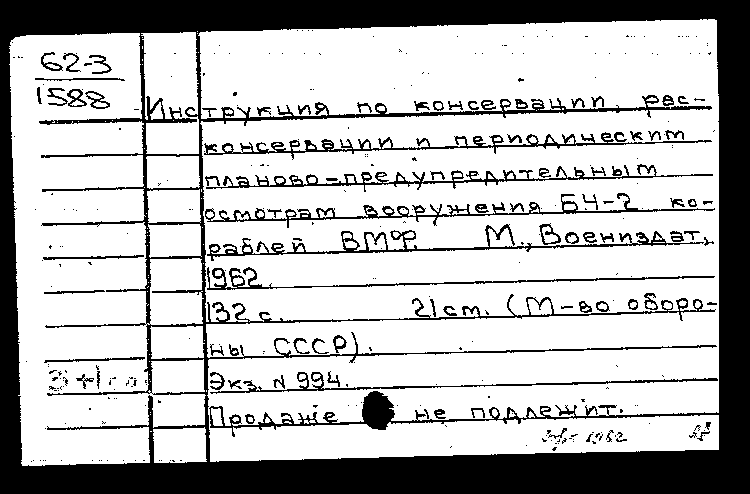 62-3
1588
Инструкция по консервации, рас-
консервации и периодическим
планово-предупредительным
осмотрам вооружения БЧ-2 ко-
раблей ВМФ. М., Воениздат,
1962.
132 с. 21 см. (М-во оборо-
ны СССР).
Экз. N 994.
Продаже не подлежит.
1962